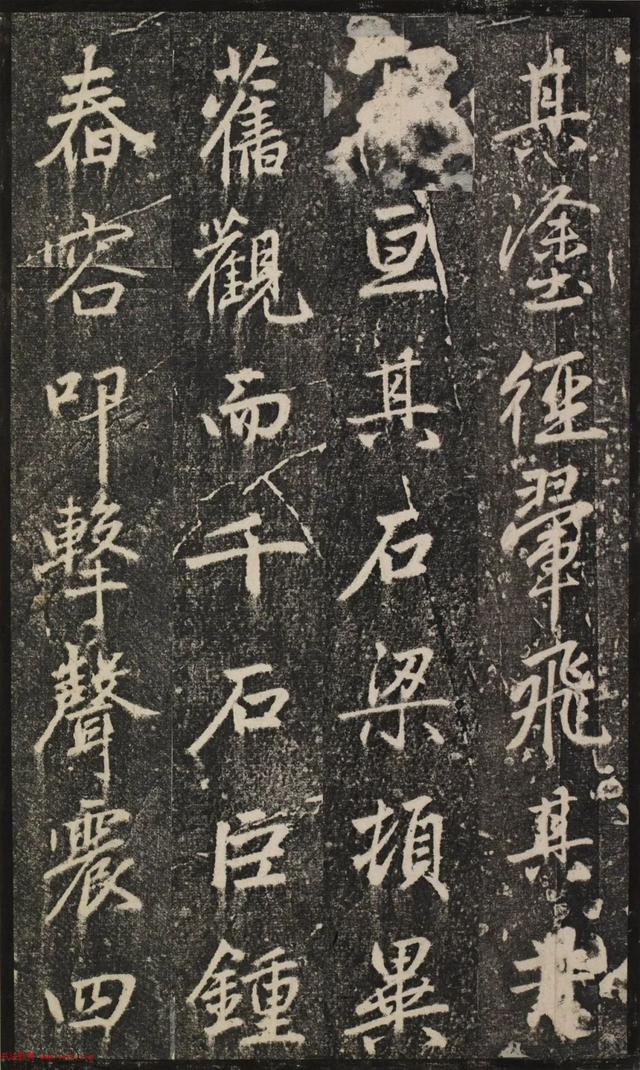 其塗徑翬飛其
亘其石梁頓畢
舊觀而千石巨鍾
春容叩擊聲震四